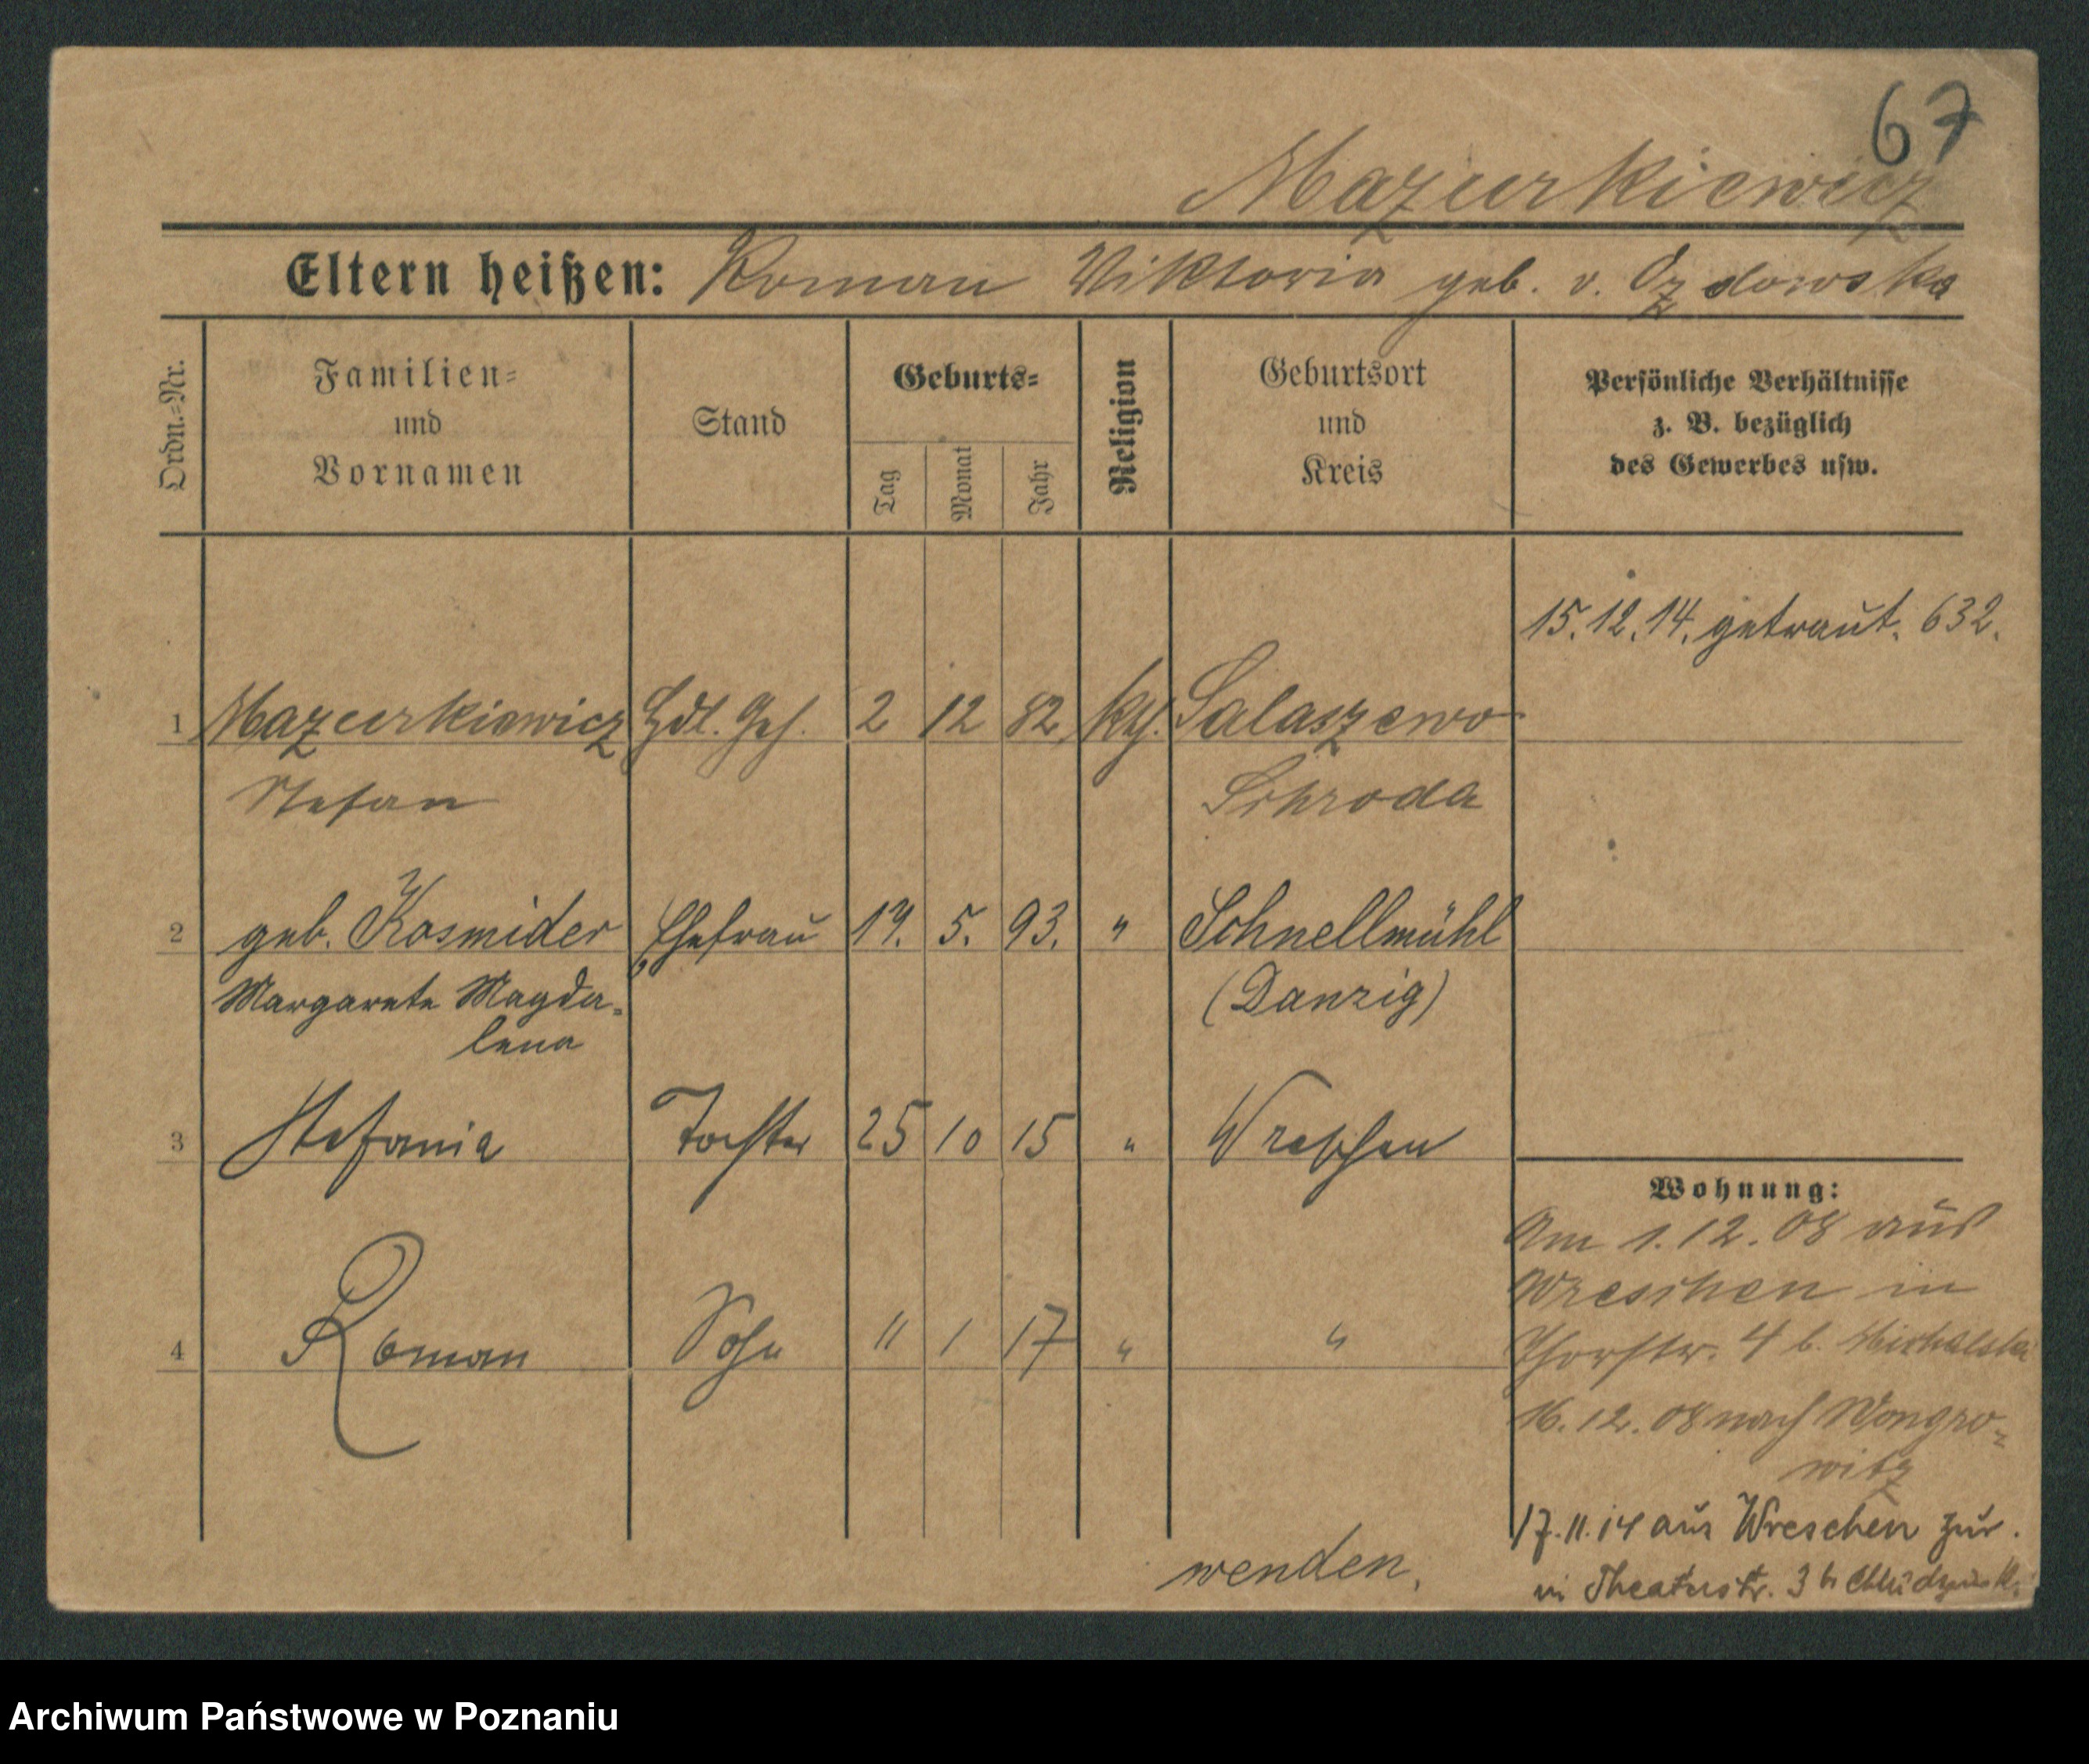 67
Mazurkiewicz
Eltern heißen: Roman Viktoria geb. v. Ozdowska
Ordn.-Nr.
Familien-
und
Vornamen
Stand
Geburts-
Tag
Monat
Jahr
Religion
Geburtsort
und
Kreis
Persönliche Verhältnisse
z. B. bezüglich
des Gewerbes usw.
15.12.14. getraut. 632.
1 Mazurkiewicz Hdl. Geh. 2 12 82 kth. Salaszewo
Stefan Schroda
2 geb. Kosmider Ehefrau 19. 5. 93. " Schnellmühl
Margarete Magda- (Danzig)
lena
3 Stefania Tochter 25 10 15 " Wreschen
Wohnung:
Am 1.12.08 aus
Wreschen in
4 Roman Sohn 11 1 17 " "
Thorstr. 4 b. Michalski
16.12.08 nach Wongro-
witz
17.11.14 aus Wreschen zur.
in Theaterstr. 3 b
wenden.
Archiwum Państwowe w Poznaniu